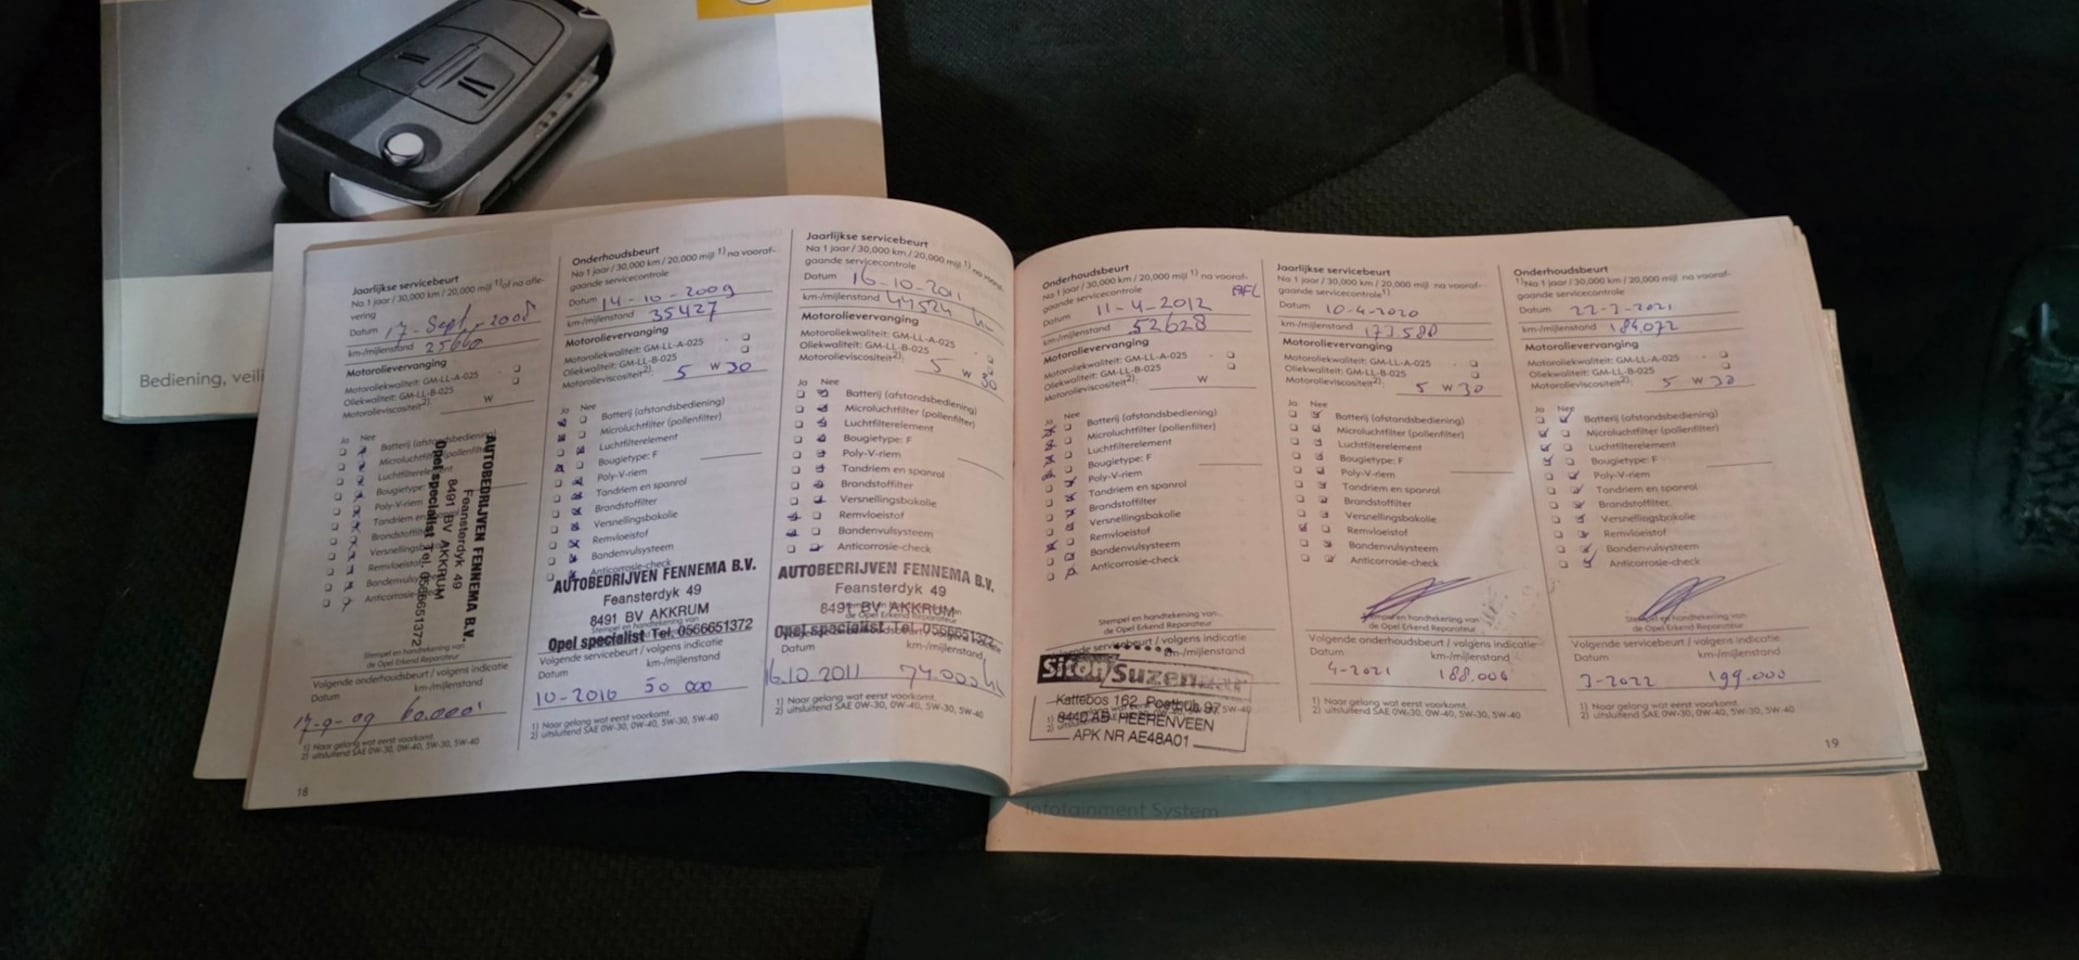 Bediening, veili
Jaarlijkse servicebeurt
Na 1 jaar / 30,000 km / 20,000 mijl 1)of na afle-
vering
Datum 17-Sept.-2008
km-/mijlenstand
Motorolievervanging
Motoroliekwaliteit: GM-LL-A-025
Oliekwaliteit: GM-LL-B-025
Motorolieviscositeit2): W
Ja Nee
Batterij (afstandsbediening)
Microluchtfilter (pollenfilter)
Luchtfilterelement
Bougietype:
Poly-V-riem
Tandriem en spanrol
Brandstoffilter
Versnellingsbakolie
Remvloeistof
Bandenvulsysteem
Anticorrosie-check
AUTOBEDRIJVEN FENNEMA B.V.
Feansterdyk 49
8491 BV AKKRUM
Opel specialist Tel. 0566651372
Stempel en handtekening van
de Opel Erkend Reparateur
Volgende onderhoudsbeurt / volgens indicatie
Datum km-/mijlenstand
17-9-09 60.000
1) Naar gelang wat eerst voorkomt.
2) uitsluitend SAE 0W-30, 0W-40, 5W-30, 5W-40
18
Onderhoudsbeurt
Na 1 jaar / 30,000 km / 20,000 mijl 1) na vooraf-
gaande servicecontrole
Datum 14-10-2009
km-/mijlenstand 35427
Motorolievervanging
Motoroliekwaliteit: GM-LL-A-025
Oliekwaliteit: GM-LL-B-025
Motorolieviscositeit2): 5 W 30
Ja Nee
Batterij (afstandsbediening)
Microluchtfilter (pollenfilter)
Luchtfilterelement
Bougietype: F
Poly-V-riem
Tandriem en spanrol
Brandstoffilter
Versnellingsbakolie
Remvloeistof
Bandenvulsysteem
Anticorrosie-check
AUTOBEDRIJVEN FENNEMA B.V.
Feansterdyk 49
8491 BV AKKRUM
Stempel en handtekening van
Opel specialist Tel. 0566651372
Volgende servicebeurt / volgens indicatie
Datum km-/mijlenstand
10-2010 50 000
1) Naar gelang wat eerst voorkomt.
2) uitsluitend SAE 0W-30, 0W-40, 5W-30, 5W-40
Jaarlijkse servicebeurt
Na 1 jaar / 30,000 km / 20,000 mijl 1) na vooraf-
gaande servicecontrole
Datum 16-10-2011
km-/mijlenstand
Motorolievervanging
Motoroliekwaliteit: GM-LL-A-025
Oliekwaliteit: GM-LL-B-025
Motorolieviscositeit2): 5 W 30
Ja Nee
Batterij (afstandsbediening)
Microluchtfilter (pollenfilter)
Luchtfilterelement
Bougietype: F
Poly-V-riem
Tandriem en spanrol
Brandstoffilter
Versnellingsbakolie
Remvloeistof
Bandenvulsysteem
Anticorrosie-check
AUTOBEDRIJVEN FENNEMA B.V.
Feansterdyk 49
8491 BV AKKRUM
de Opel Erkend Reparateur
Opel specialist Tel. 0566651372
Datum km-/mijlenstand
16.10 2011 74.000
1) Naar gelang wat eerst voorkomt.
2) uitsluitend SAE 0W-30, 0W-40, 5W-30, 5W-40
Onderhoudsbeurt
Na 1 jaar / 30,000 km / 20,000 mijl 1) na vooraf-
gaande servicecontrole
Datum 11-4-2012
km-/mijlenstand 52628
Motorolievervanging
Motoroliekwaliteit: GM-LL-A-025
Oliekwaliteit: GM-LL-B-025
Motorolieviscositeit2): W
Ja Nee
Batterij (afstandsbediening)
Microluchtfilter (pollenfilter)
Luchtfilterelement
Bougietype: F
Poly-V-riem
Tandriem en spanrol
Brandstoffilter
Versnellingsbakolie
Remvloeistof
Bandenvulsysteem
Anticorrosie-check
Stempel en handtekening van
de Opel Erkend Reparateur
km-/mijlenstand
Kattebos 162
8440 AB HEERENVEEN
APK NR AE48A01
Jaarlijkse servicebeurt
Na 1 jaar / 30,000 km / 20,000 mijl na vooraf-
gaande servicecontrole1)
Datum 10-4-2020
km-/mijlenstand 173580
Motorolievervanging
Motoroliekwaliteit: GM-LL-A-025
Oliekwaliteit: GM-LL-B-025
Motorolieviscositeit2): 5 W 30
Ja Nee
Batterij (afstandsbediening)
Microluchtfilter (pollenfilter)
Luchtfilterelement
Bougietype: F
Poly-V-riem
Tandriem en spanrol
Brandstoffilter
Versnellingsbakolie
Remvloeistof
Bandenvulsysteem
Anticorrosie-check
Stempel en handtekening van
de Opel Erkend Reparateur
Volgende onderhoudsbeurt / volgens indicatie
Datum km-/mijlenstand
4-2021 188.000
1) Naar gelang wat eerst voorkomt.
2) uitsluitend SAE 0W-30, 0W-40, 5W-30, 5W-40
Onderhoudsbeurt
1)Na 1 jaar / 30,000 km / 20,000 mijl na vooraf-
gaande servicecontrole
Datum 22-3-2021
km-/mijlenstand 184.072
Motorolievervanging
Motoroliekwaliteit: GM-LL-A-025
Oliekwaliteit: GM-LL-B-025
Motorolieviscositeit2): 5 W 30
Ja Nee
Batterij (afstandsbediening)
Microluchtfilter (pollenfilter)
Luchtfilterelement
Bougietype: F
Poly-V-riem
Tandriem en spanrol
Brandstoffilter
Versnellingsbakolie
Remvloeistof
Bandenvulsysteem
Anticorrosie-check
Stempel en handtekening van
de Opel Erkend Reparateur
Volgende servicebeurt / volgens indicatie
Datum km-/mijlenstand
3-2022 199.000
1) Naar gelang wat eerst voorkomt.
2) uitsluitend SAE 0W-30, 0W-40, 5W-30, 5W-40
19
Infotainment System